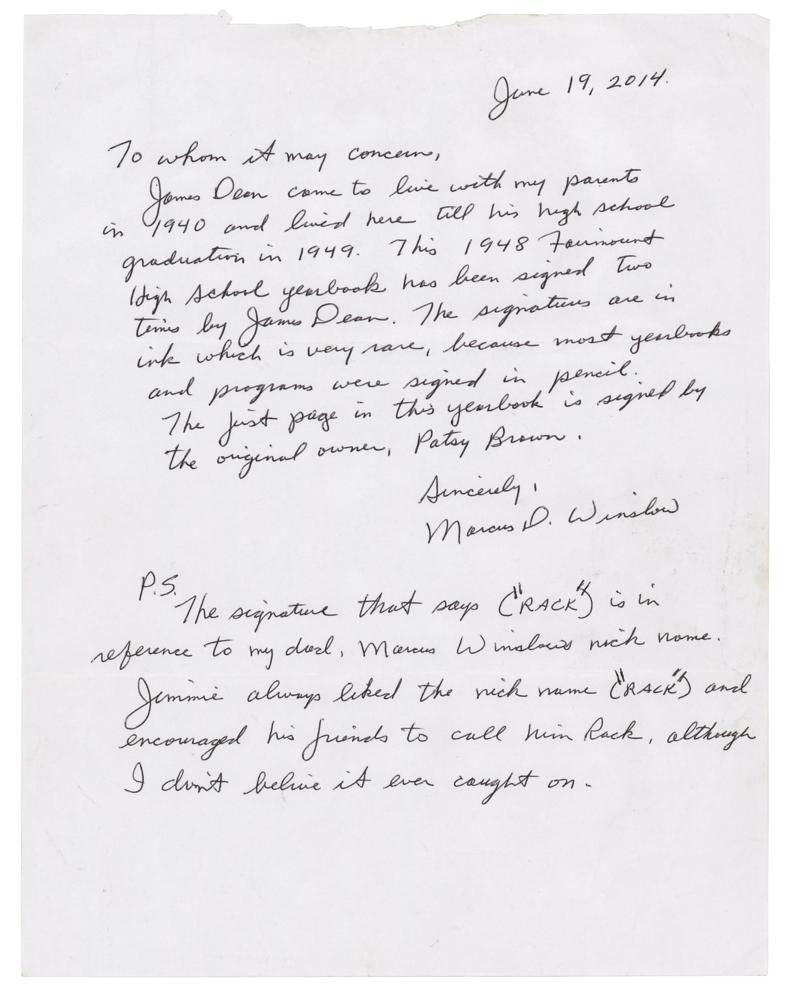 June 19, 2014.
To whom it may concern,
James Dean came to live with my parents
in 1940 and lived here till his high school
graduation in 1949. This 1948 Fairmount
High School yearbook has been signed two
times by James Dean. The signatures are in
ink which is very rare, because most yearbooks
and programs were signed in pencil.
The first page in this yearbook is signed by
the original owner, Patsy Brown.
Sincerely,
Marcus D. Winslow
P.S.
The signature that says ("RACK") is in
reference to my dad, Marcus Winslows nick name.
Jimmie always liked the nick name ("RACK") and
encouraged his friends to call him Rack, although
I don't belive it ever caught on.